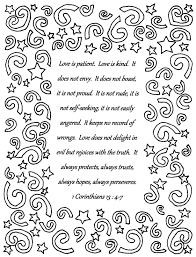 Love is patient.  Love is kind.  It
does not envy.  It does not boast,
it is not proud.  It is not rude, it is
not self-seeking, it is not easily
angered.  It keeps no record of
wrongs.  Love does not delight in
evil but rejoices with the truth.  It
always protects, always trusts,
always hopes, always perseveres.
1 Corinthians 13 : 4-7